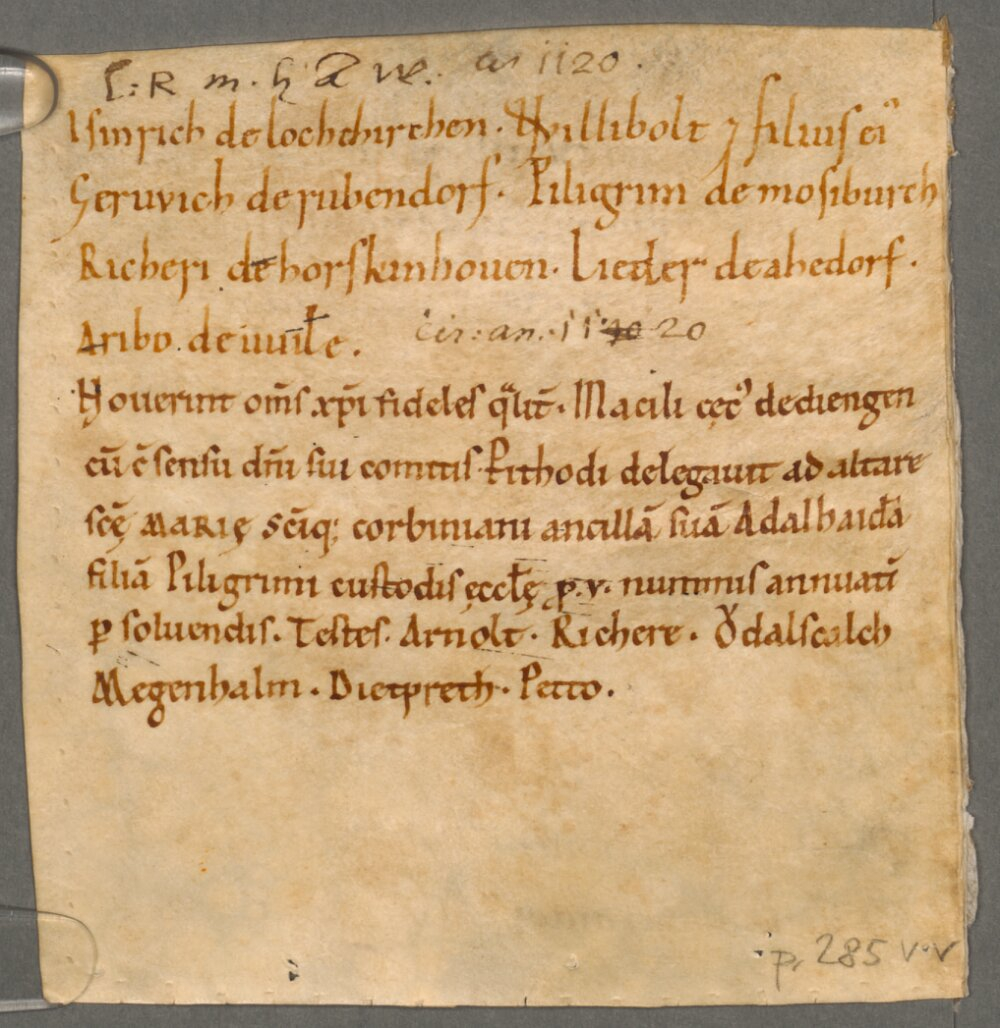 cir 1120.
Isinrich de lochchirchen. Willibolt ⁊ filius ei᾽
Geruvich de rubendorf. Piligrim de mosiburch
Richeri de horskinhouen. Lieder de ahedorf.
Aribo. de uuile.
cir: an. 1140 20
Nouerint om̄s xp̄i fideles qͣlit̄. Macili cęc᾽ de diengen
cū c̄sensu dn̄i sui comitis Rithodi delegauit ad altare
scę̄ MARIĘ Sc̄iq; corbiniani ancillā suā Adalhaidā
filiā Piligrimi custodis ęccłę p. v. nummis annuatī
ꝑ soluendis. Testes. Arnolt. Richere. Ǒdalscalch
Megenhalm. Dietpreth. Petto.
p. 285 v.v